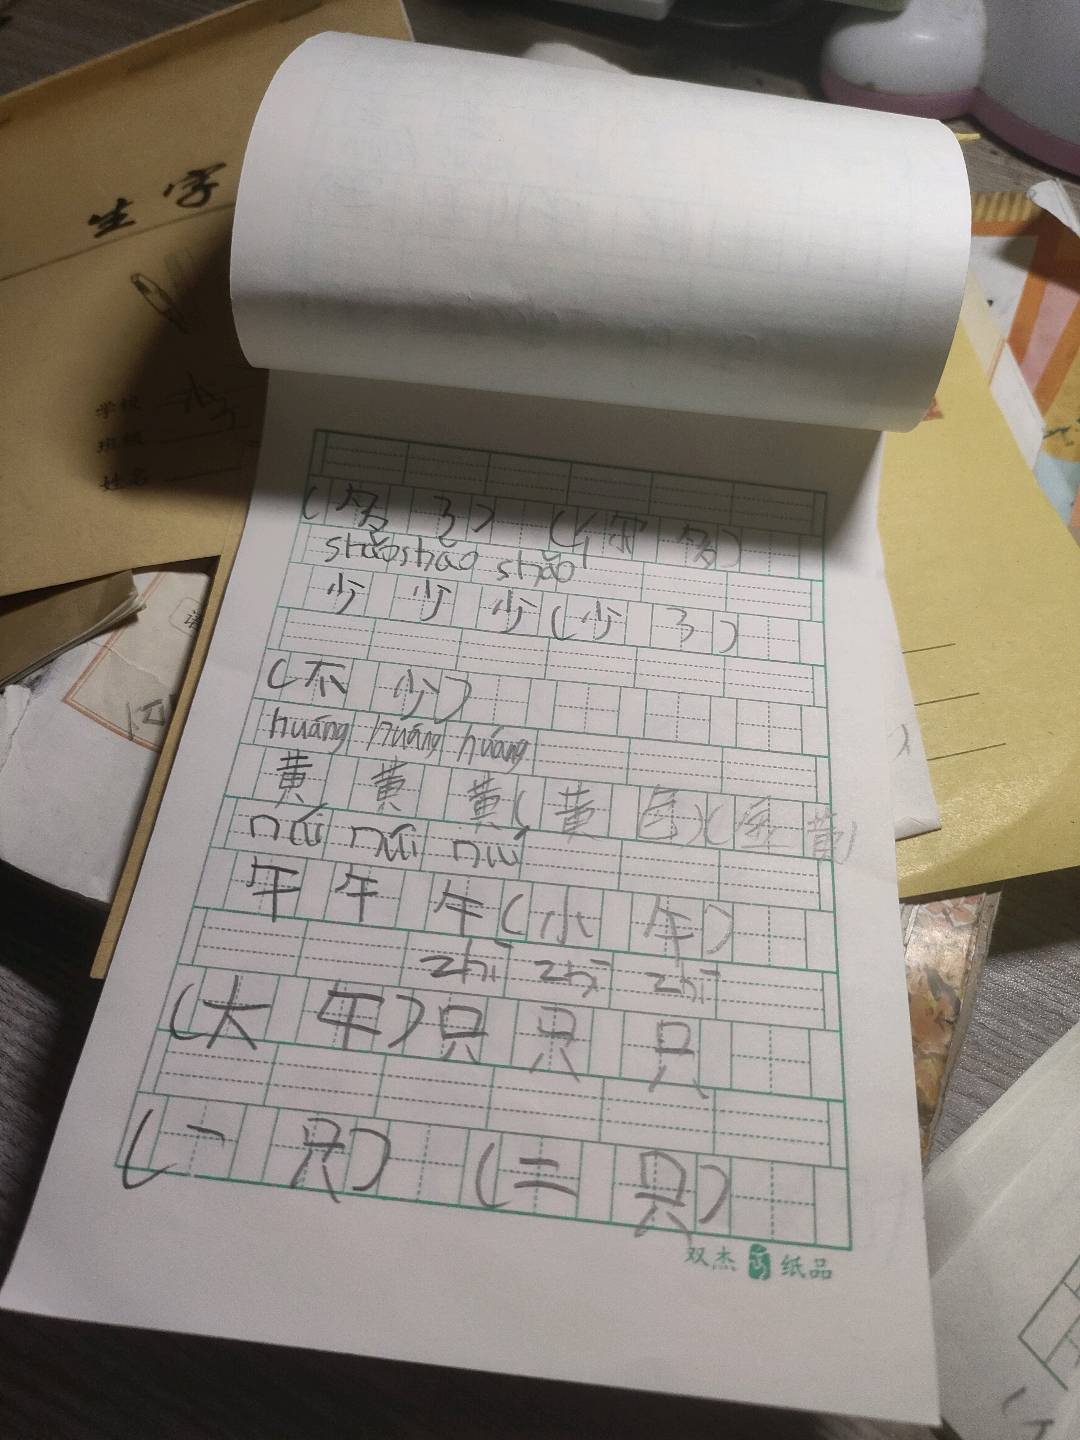 生字
学校
班级
姓名
(多 了) (好 多)
shǎo shǎo shǎo
少 少 少 (少 了)
(不 少)
huáng huáng huáng
黄 黄 黄 (黄 色) (金 黄)
niú niú niú
午 午 午 (小 午)
zhī zhī zhī
(大 午) 只 只 只
(一 只) (二 只)
双杰 纸品